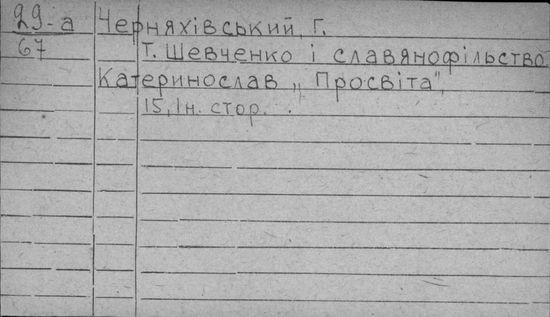 29-а Черняхівський, Г.
67 Т. Шевченко і славянофільство.
Катеринослав „Просвіта",
15, Ін. стор.